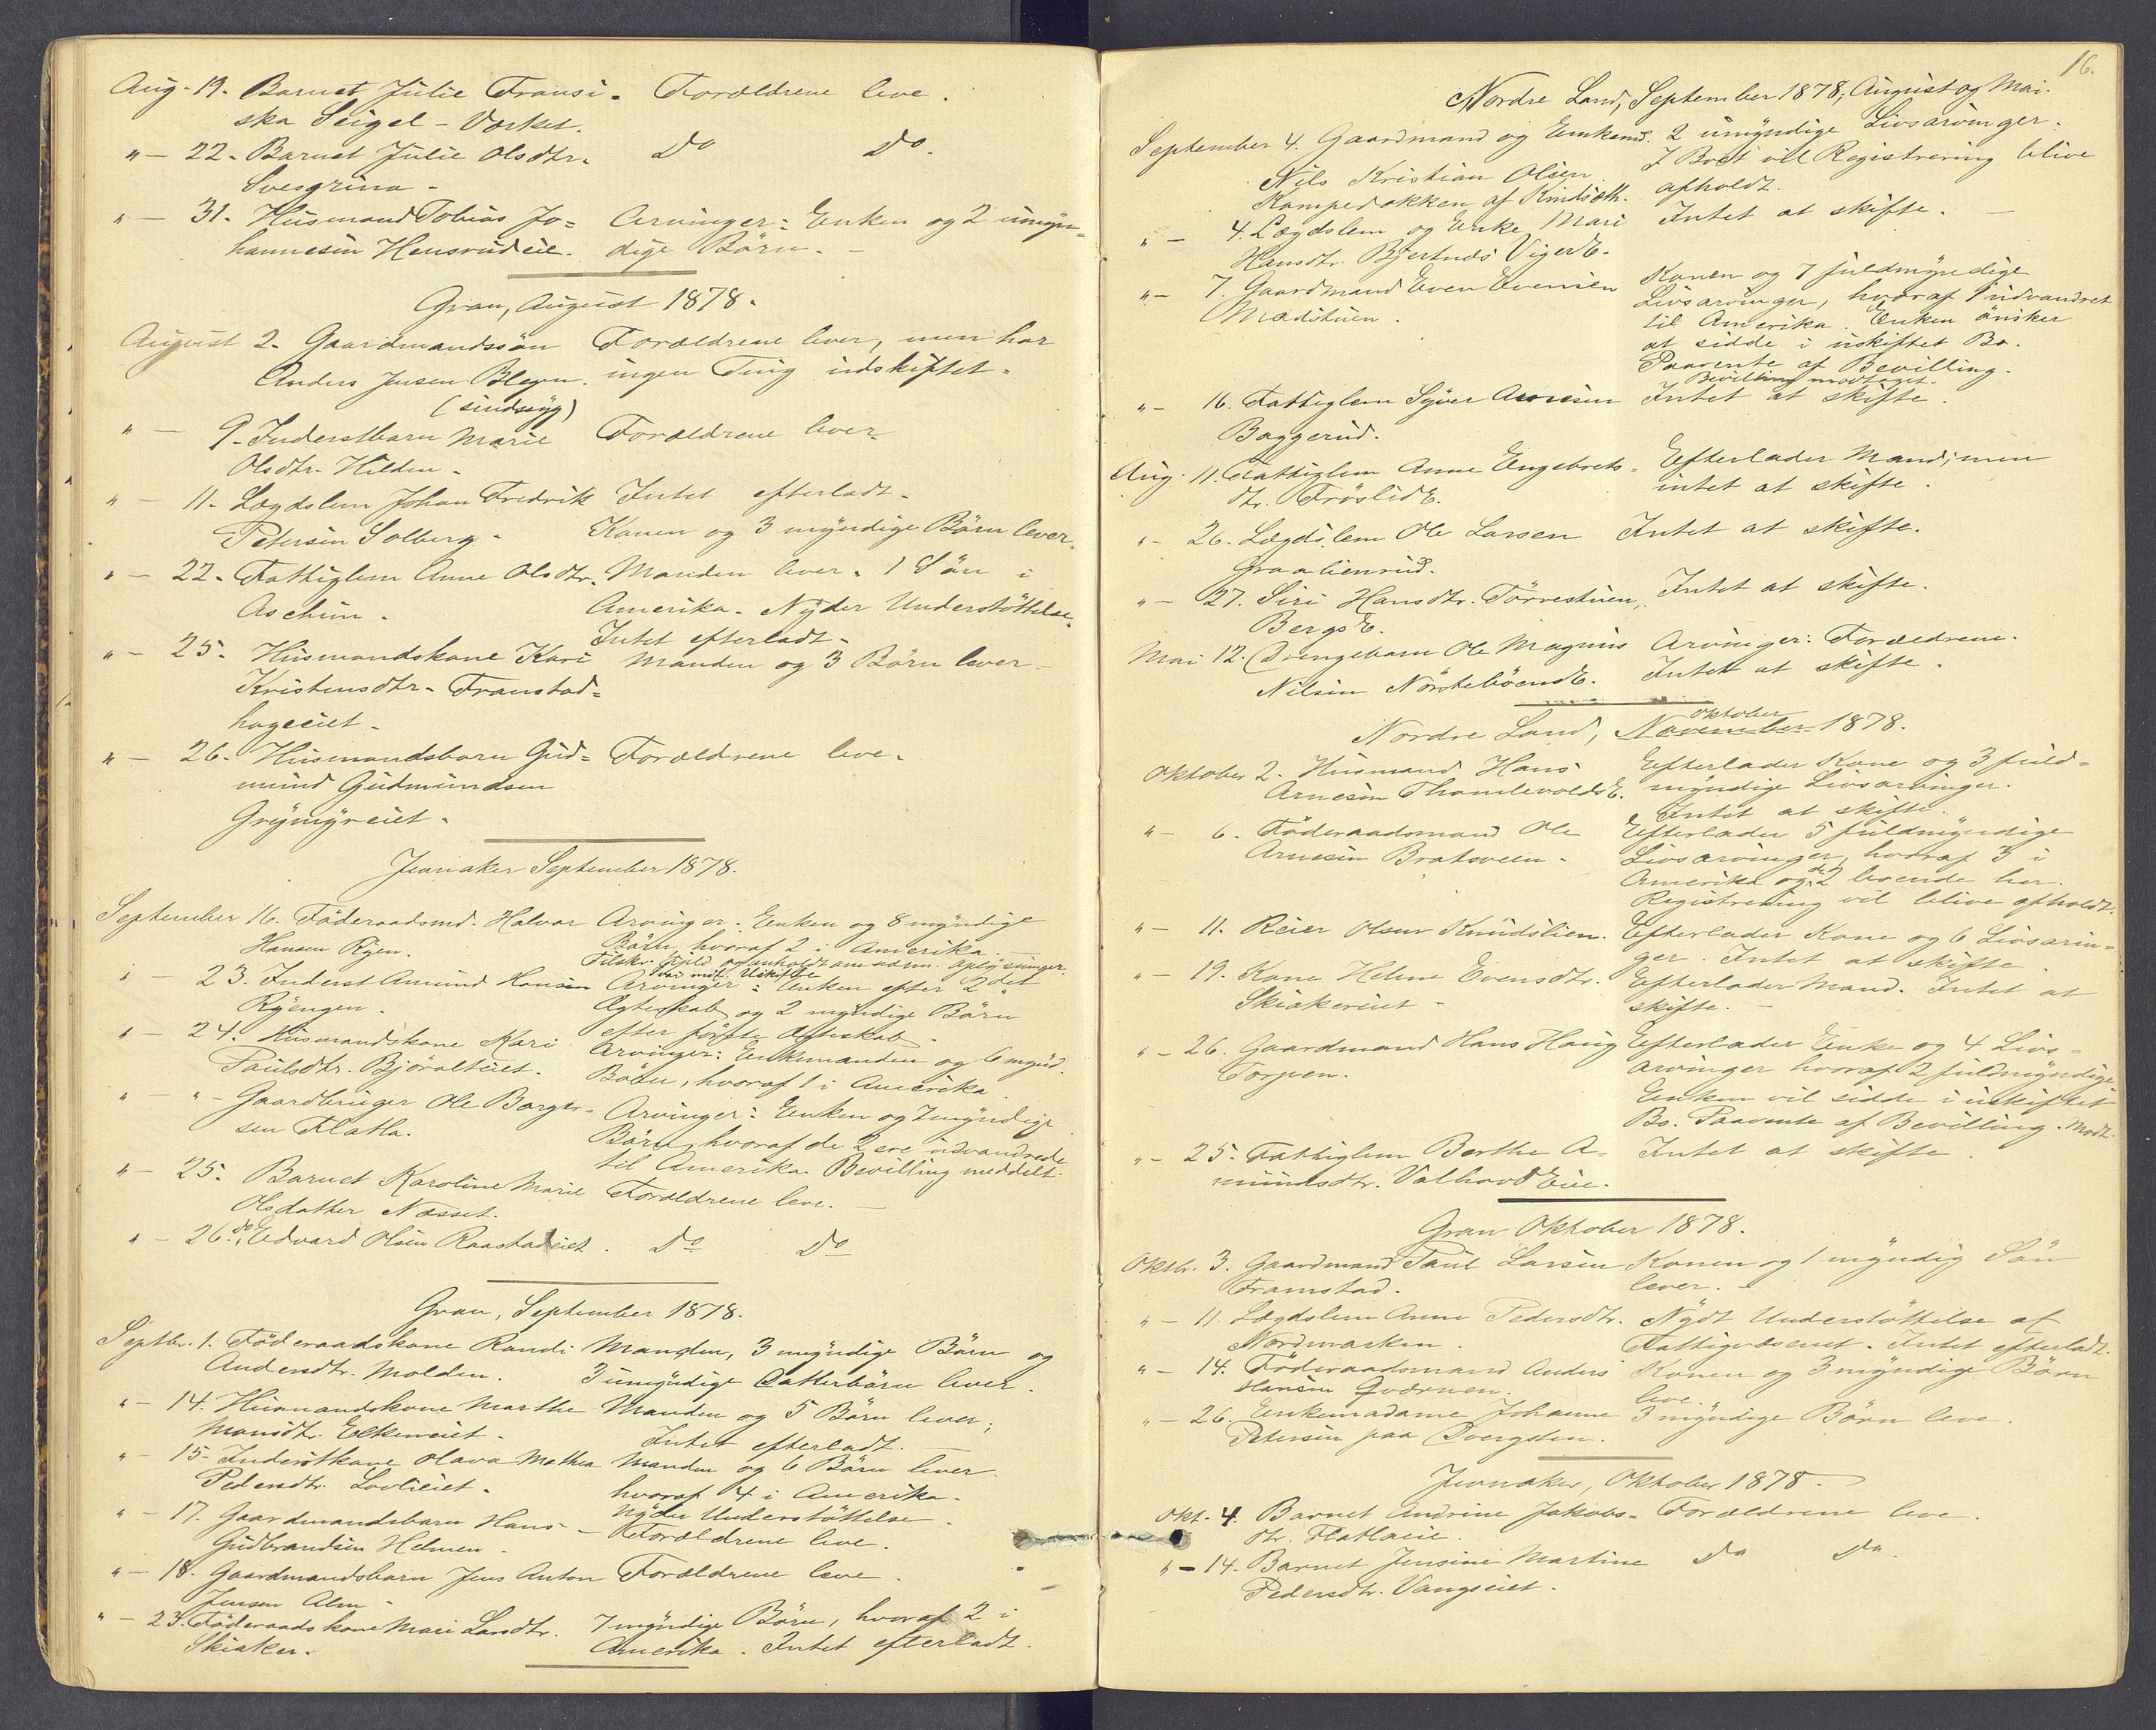 Aug. 19. Barnet Julie Fransi- Forældrene leve.
ska Seigel - Værket.
" — 22. Barnet Julie Olsdtr. Do Do.
Svesgrina -
" — 31. Husmand Tobias Jo= Arvinger: Enken og 2 umyn=
hannesen Hensrudeie. dige Børn. —
Gran, August 1878.
August 2. Gaardmandssøn Forældrene lever, men har
Anders Jensen Blegen. ingen Ting udskiftet.
(sindssyg)
" — 9. Inderstbarn Marie Forældrene lever.
Olsdtr. Hilden.
" — 11. Lægdslem Johan Fredrik Intet efterladt.
Petersen Solberg. Konen og 3 myndige Børn lever.
" — 22. Fattiglem Anne Olsdtr. Manden lever. 1 Søn i
Aschim. Amerika. Nyder Understøttelse.
Intet efterladt.
" — 25. Husmandskone Kari Manden og 3 Børn lever -
Kristensdtr. Framstad=
hageeiet -
" — 26. Husmandsbarn Gud= Forældrene leve.
mund Gudmundsen
Grymyreiet.
Jevnaker September 1878.
September 16. Føderaadsmd. Halvor Arvinger: Enken og 8 myndige
Hansen Ryen. Børn, hvoraf 2 i Amerika. —
Tilskr. Kjeld og anholdt om udm. oplysninger.
" — 23. Inderst Amund Hansen Arvinger: Enken efter 2det
Ryengen. Ægteskab og 2 myndige Børn
efter første Ægteskab.
" — 24. Husmandskone Kari Arvinger: Enkemanden og 6 mynd.
Paulsdtr. Bjøralteiet. Børn, hvoraf 1 i Amerika.
" — " - Gaardbruger Ole Borger- Arvinger: Enken og 7 myndige
sen Flatla. Børn, hvoraf de 2 ere udvandrede
til Amerika. Bevilling meddelt.
" — 25. Barnet Karoline Marie Forældrene leve. —
Olsdatter Næsset.
" — 26. do, Edvard Olsen Raastadeiet. Do Do
Gran, September 1878.
Septbr. 1. Føderaadskone Randi Manden, 3 myndige Børn og
Andersdtr. Molden. 3 umyndige Datterbørn lever.
" — 14. Husmandskone Marthe Manden og 5 Børn lever;
Mansdtr. Elkeneiet. Intet efterladt. —
" — 15. Inderstkone Olava Mathea Manden og 6 Børn lever
Pedersdtr. Lovlieiet. hvoraf 4 i Amerika.
Nyder Understøttelse.
" — 17. Gaardmandsbarn Hans - Forældrene leve.
Gudbrandsen Helmen -
" — 18. Gaardmandsbarn Jens Anton Forældrene leve.
Jensen Alm -
" — 23. Føderaadskone Mari Larsdtr. 7 myndige Børn, hvoraf 2 i
Skiaker. Amerika. Intet efterladt.
16.
Nordre Land, September 1878, August og Mai.
September 4. Gaardmand og Enkemd. 2 umyndige Livsarvinger.
Nils Kristian Olsen I Boet vil Registrering blive
Kampedokken af Kindseth. afholdt.
" — 4. Lægdslem og Enke Mari Intet at skifte. —
Hansdtr. Bjertnæs VigerE.
" — 7. Gaardmand Even Evensen Konen og 7 fuldmyndige
Mædstuen. Livsarvinger, hvoraf 1 udvandret
til Amerika. Enken ønsker
at sidde i uskiftet Bo.
Paavente af Bevilling.
Bevilling modtaget.
" — 16. Fattiglem Syver Arnesen Intet at skifte.
Baggerud.
Aug. 11. Fattiglem Anne Engebrets- Efterlader Mand; men
dtr. FrøslidE. intet at skifte.
" — 26. Lægdslem Ole Larsen Intet at skifte.
Graalienrud.
" — 27. Siri Hansdtr. Tørrestuen, Intet at skifte.
BergsE.
Mai 12. Drengebarn Ole Magnus Arvinger: Forældrene.
Nilsen NørstebøendE. Intet at skifte.
Nordre Land, November Oktober 1878.
Oktober 2. Husmand Hans Efterlader Kone og 3 fuld=
Arnesen ThomlevoldsE. myndige Livsarvinger.
Intet at skifte.
" — 6. Føderaadsmand Ole Efterlader 5 fuldmyndige
Arnesen Bratsveen. Livsarvinger, hvoraf 3 i
Amerika og de 2 boende her.
Registrering vil blive afholdt.
" — 11. Reier Olsen Knudslien. Efterlader Kone og 6 Livsarvin=
ger. Intet at skifte.
" — 19. Kone Helene Evensdtr. Efterlader Mand. Intet at
Skiakereiet - skifte. —
" — 26. Gaardmand Hans Haug Efterlader Enke og 4 Livs-
Torpen. arvinger hvoraf 2 fuldmyndige
Enken vil sidde i uskiftet
Bo. Paavente af Bevilling. Modt.
" — 25. Fattiglem Berthe A- Intet at skifte.
mundsdtr. Valhovd Eie.
Gran Oktober 1878.
Oktbr. 3. Gaardmand Paul Larsen Konen og 1 myndig Søn
Framstad. lever.
" — 11. Lægdslem Anne Pedersdtr. Nydt Understøttelse af
Nordmarken. Fattigvæsenet. Intet efterladt.
" — 14. Føderaadsmand Anders Konen og 3 myndige Børn
Hansen Qværnen. leve.
" — 26. Enkemadame Johanne 3 myndige Børn leve.
Petersen paa Dvergsten.
Jevnaker, Oktober 1878.
Okt. 4. Barnet Andrine Jakobs= Forældrene leve.
dtr. Flatlaeie.
" — 14. Barnet Jensine Martine Do Do.
Pedersdtr. Vangseiet.